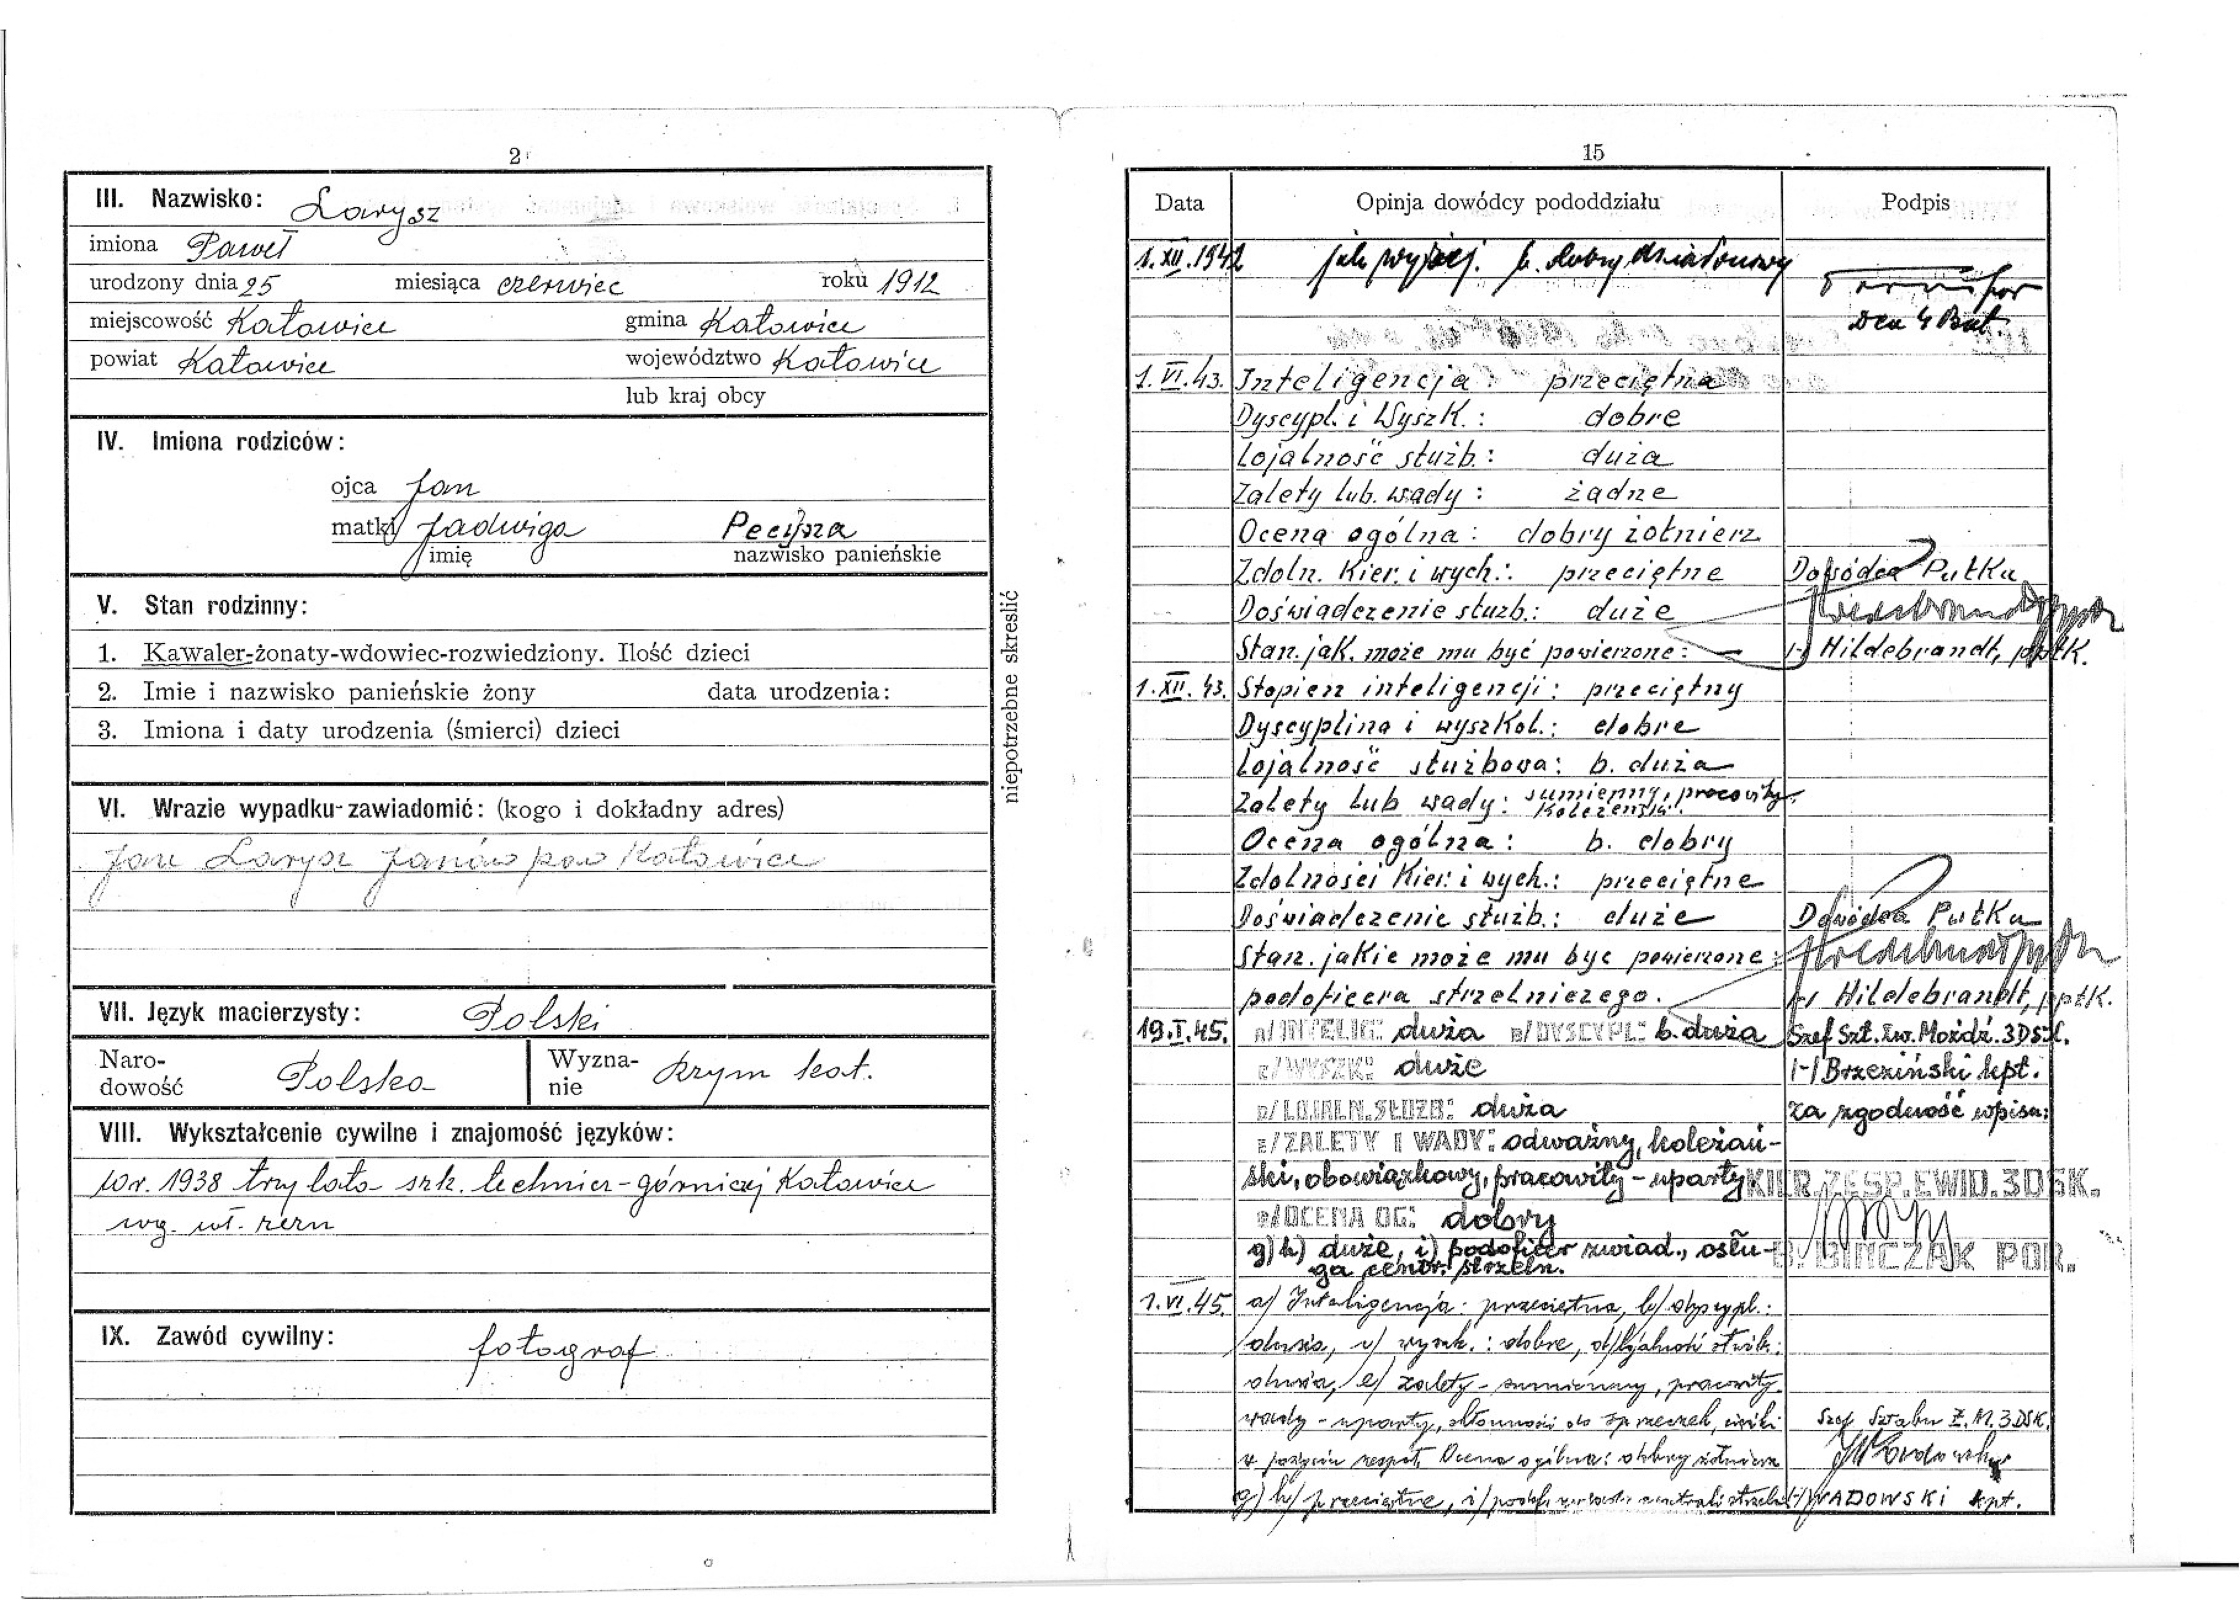 2
III. Nazwisko: Larysz
imiona Paweł
urodzony dnia 25 miesiąca czerwiec roku 1912
miejscowość Katowice gmina Katowice
powiat Katowice województwo Katowice
lub kraj obcy
IV. Imiona rodziców:
ojca Jan
matki Jadwiga
imię nazwisko panieńskie
V. Stan rodzinny:
1. Kawaler-żonaty-wdowiec-rozwiedziony. Ilość dzieci
2. Imie i nazwisko panieńskie żony data urodzenia:
3. Imiona i daty urodzenia (śmierci) dzieci
niepotrzebne skreślić
VI. Wrazie wypadku-zawiadomić: (kogo i dokładny adres)
Jan Larysz Janów pow Katowice
VII. Język macierzysty: Polski
Narodowość Polska Wyznanie Rzym kat.
VIII. Wykształcenie cywilne i znajomość języków:
w r. 1938 trzy lata szk. technicz-górniczej Katowice
wg. wł. zezn
IX. Zawód cywilny: fotograf
15
Data Opinja dowódcy pododdziału Podpis
1.XII.1942 jak wyżej. b. dobry działonowy
Dca 4 Bat.
1.VI.43. Inteligencja: przeciętna
Dyscypl. i Wyszk.: dobre
Lojalność służb.: duża
Zalety lub. wady: żądne
Ocena ogólna: dobry żołnierz
Zdoln. Kier. i wych.: przeciętne Dowódca Pułku
Doświadczenie służb.: duże
Stan. jak. może mu być powierzone: — /-/ Hildebrandt, ppłk.
1.XII.43. Stopien inteligencji: przeciętny
Dyscyplina i wyszkol.: dobre
Lojalność służbowa: b. duża
Zalety lub wady: sumienny, pracowity,
koleżeński.
Ocena ogólna: b. dobry
Zdolności Kier. i wych.: przeciętne
Doświadczenie służb.: duże Dowódca Pułku
Stan. jakie może mu być powierzone:
podoficera strzelniczego. /-/ Hildebrandt, ppłk.
19.I.45. a/INTELIG: duża b/DYSCYPL: b. duża Szef Szt. Zw. Moźdź. 3DSK.
c/WYSZK: duże /-/ Brzeziński kpt.
d/LOJALN.SŁUŻB: duża za zgodność wpisu:
e/ZALETY I WADY: odważny, koleżań-
ski, obowiązkowy, pracowity – uparty KIER.ZESP.EWID.3DSK.
f/OCENA OG: dobry
g) h) duże, i) podoficer zwiad., osłu- BINCZAK POR.
ga centr. strzeln.
1.VI.45. a/ Inteligencja: przeciętna, b/ dyscypl.:
duża, c/ wyszk.: dobre, d/ lojalność służb.:
duża, e/ zalety – sumienny, pracowity
wady – uparty, skłonności do sprzeczek, ciężki Szef Sztabu Z.M. 3 DSK.
w pożyciu zespoł. Ocena ogólna: dobry żołnierz
g) h/ przeciętne, i/ centrali strzeln. /-/ WADOWSKI kpt.